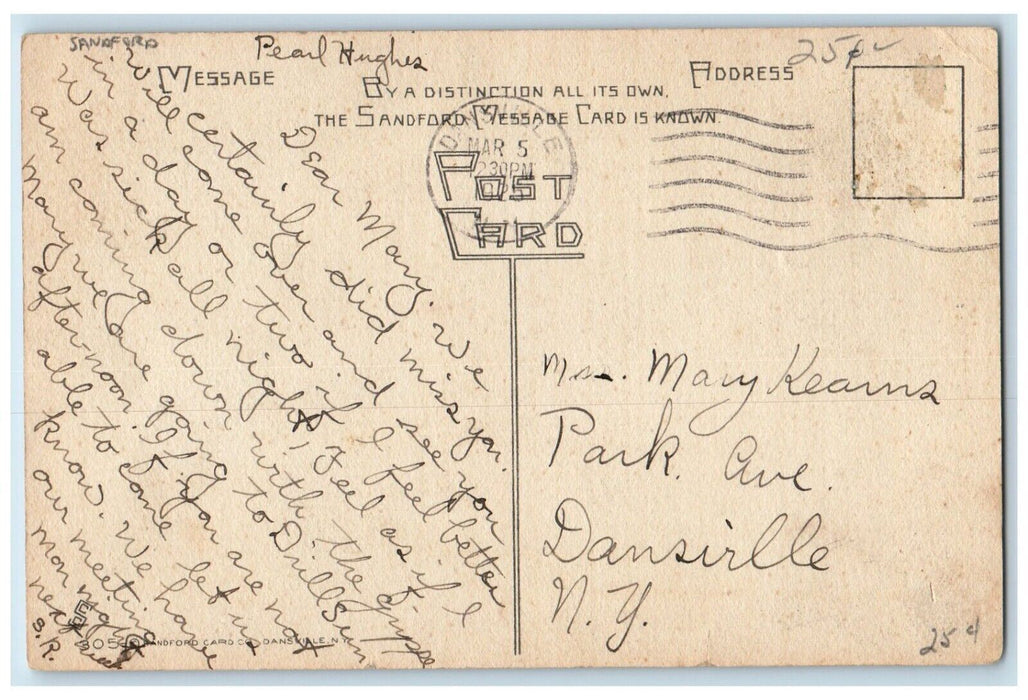 SANDFORD
Pearl Hughes
MESSAGE
ADDRESS
25¢
BY A DISTINCTION ALL ITS OWN,
THE SANDFORD MESSAGE CARD IS KNOWN.
DANSVILLE
MAR 5
230PM
POST
CARD
Dear Mary. We
Will certainly did miss you.
in come over and see you
a day or two if I feel better
Was sick all night, feel as if I
am coming down with the grippe
Mary we are going to Drills Sun
afternoon. If you are not
able to come let us
know. We have
our meeting
Mon night
next
S.R.
Mrs. Mary Kearns
Park. Ave.
Dansville
N.Y.
305 © SANDFORD CARD CO. DANSVILLE, N.Y.
25¢